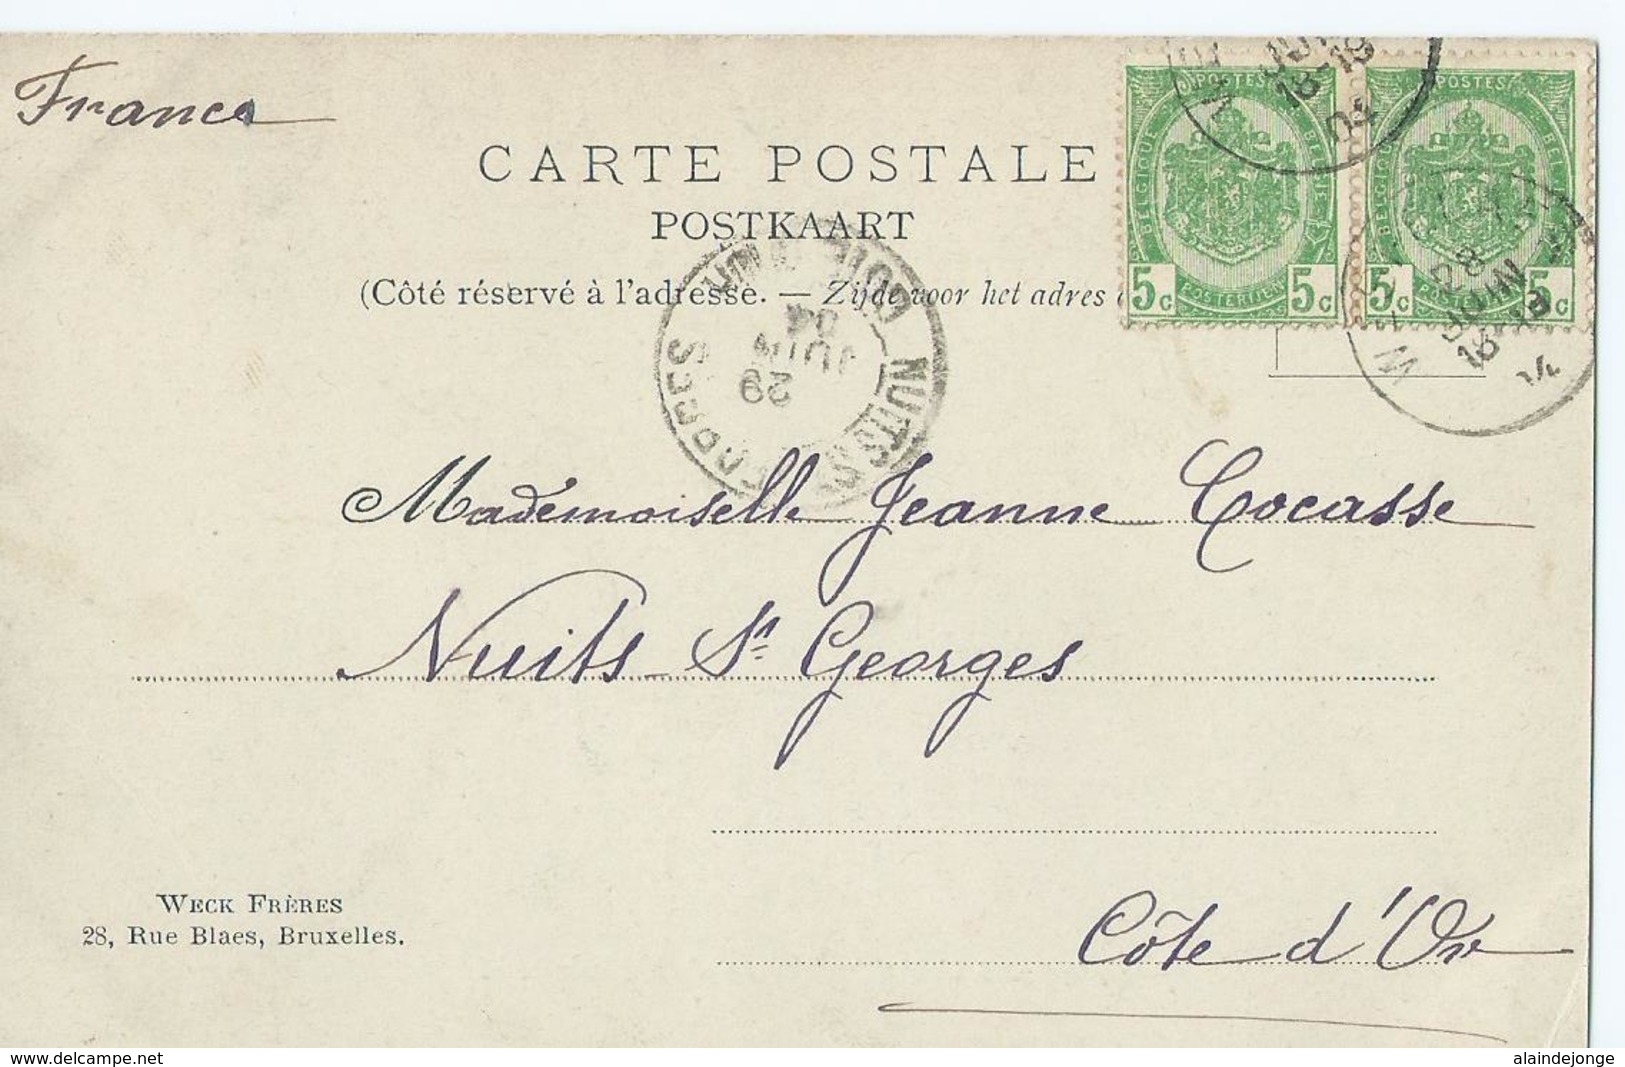 France
CARTE POSTALE
POSTKAART
(Côté réservé à l'adresse. — Zijde voor het adres
POSTES
BELGIQUE
BELGIE
5 c
POSTERIJEN
5 c
POSTES
BELGIQUE
5 c
POSTERIJEN
5 c
18-19
04
28
JUIN
NUITS
CÔTE D'OR
29
JUIN
04
Mademoiselle Jeanne Cocasse
Nuits St Georges
Côte d'Or
WECK FRÈRES
28, Rue Blaes, Bruxelles.
www.delcampe.net
alaindejonge